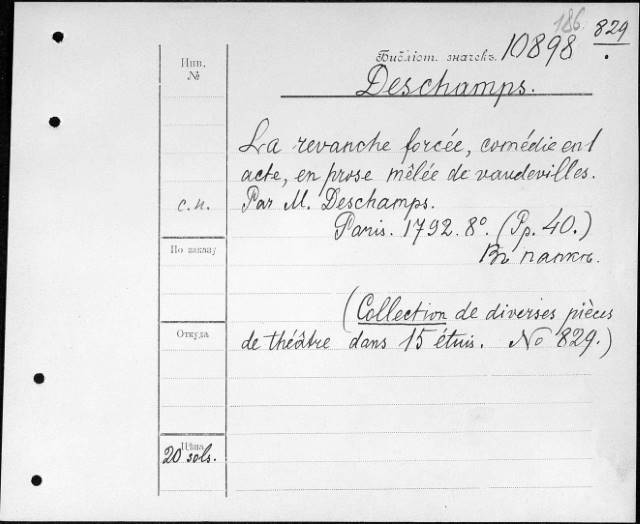 186 829
Инв. №
Библіот. значекъ. 10898
Deschamps.
La revanche forcée, comédie en 1
acte, en prose mêlée de vaudevilles.
с.н. Par M. Deschamps.
Paris. 1792. 8º. (Pp. 40.)
По заказу
Въ папкѣ.
(Collection de diverses pièces
Откуда
de théâtre dans 15 étuis. No 829.)
Цѣна
20 sols.